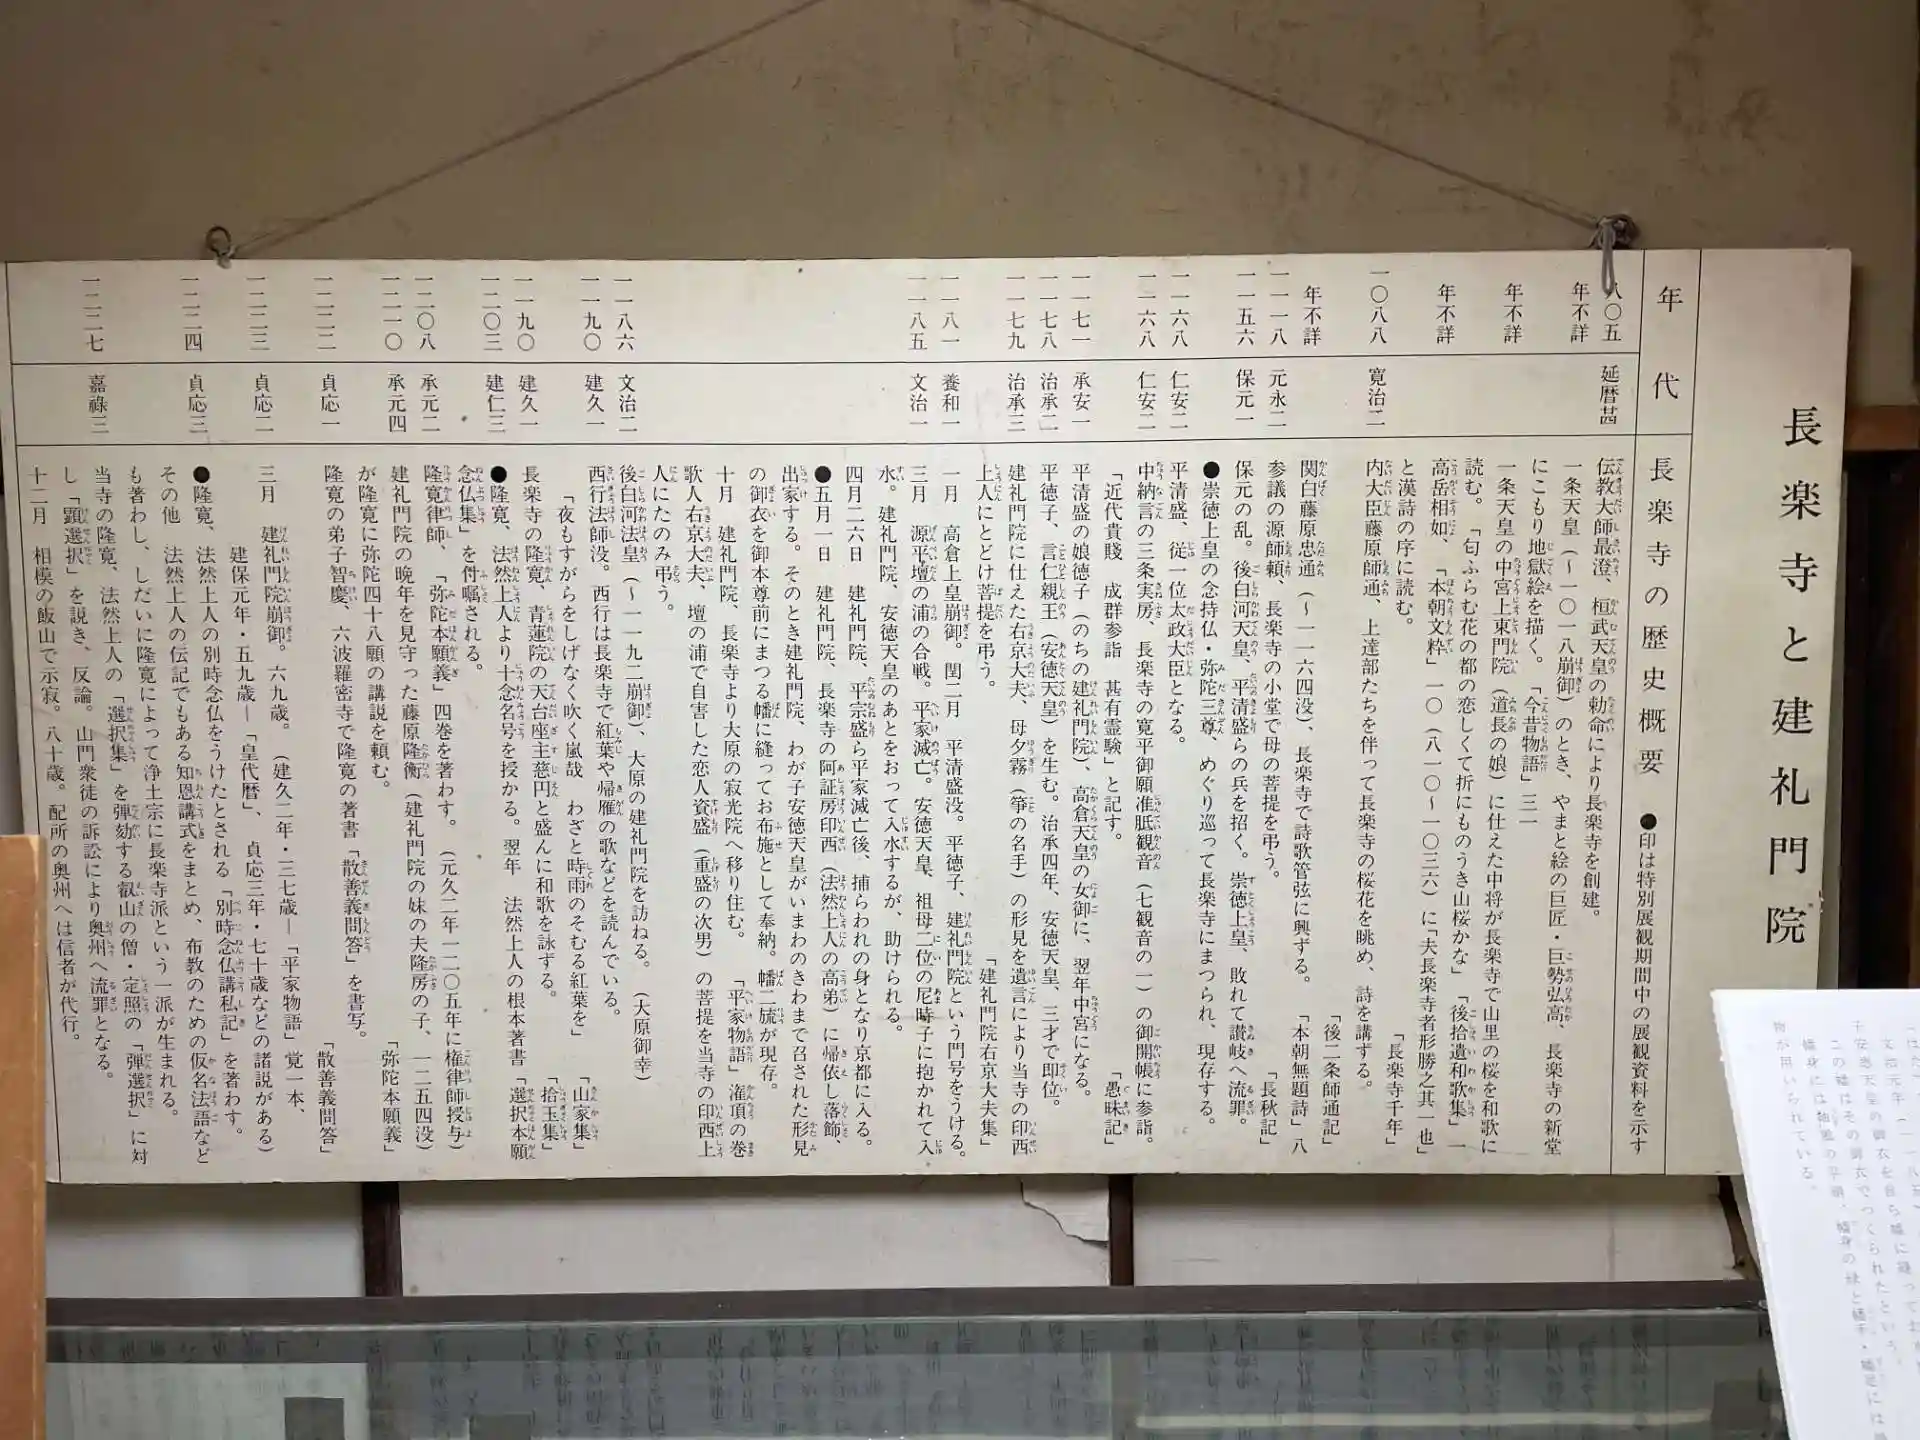 長楽寺と建礼門院
年代 長楽寺の歴史概要 ●印は特別展観期間中の展観資料を示す
八〇五 延暦廿四 伝教大師最澄、桓武天皇の勅命により長楽寺を創建。
年不詳 一条天皇（〜一〇一八崩御）のとき、やまと絵の巨匠・巨勢弘高、長楽寺の新堂
にこもり地獄絵を描く。「今昔物語」三一
年不詳 一条天皇の中宮上東門院（道長の娘）に仕えた中将が長楽寺で山里の桜を和歌に
読む。「匂ふらむ花の都の恋しくて折にものうき山桜かな」「後拾遺和歌集」一
年不詳 高岳相如、「本朝文粋」一〇（八一〇〜一〇三六）に「夫長楽寺者形勝之其一也」
と漢詩の序に読む。 「長楽寺千年」
一〇八八 寛治二 内大臣藤原師通、上達部たちを伴って長楽寺の桜花を眺め、詩を講ずる。
「後二条師通記」
年不詳 関白藤原忠通（〜一一六四没）、長楽寺で詩歌管弦に興ずる。 「本朝無題詩」八
一一一八 元永二 参議の源師頼、長楽寺の小堂で母の菩提を弔う。 「長秋記」
一一五六 保元一 保元の乱。後白河天皇、平清盛らの兵を招く。崇徳上皇、敗れて讃岐へ流罪。
●崇徳上皇の念持仏・弥陀三尊、めぐり巡って長楽寺にまつられ、現存する。
一一六八 仁安二 平清盛、従一位太政大臣となる。
一一六八 仁安二 中納言の三条実房、長楽寺の寛平御願准胝観音（七観音の一）の御開帳に参詣。
「近代貴賤 成群参詣 甚有霊験」と記す。 「愚昧記」
一一七一 承安一 平清盛の娘徳子（のちの建礼門院）、高倉天皇の女御に、翌年中宮になる。
一一七八 治承二 平徳子、言仁親王（安徳天皇）を生む。治承四年、安徳天皇、三才で即位。
一一七九 治承三 建礼門院に仕えた右京大夫、母夕霧（箏の名手）の形見を遺言により当寺の印西
上人にとどけ菩提を弔う。 「建礼門院右京大夫集」
一一八一 養和一 一月 高倉上皇崩御。閏二月 平清盛没。平徳子、建礼門院という門号をうける。
一一八五 文治一 三月 源平壇の浦の合戦。平家滅亡。安徳天皇、祖母二位の尼時子に抱かれて入
水。建礼門院、安徳天皇のあとをおって入水するが、助けられる。
四月二六日 建礼門院、平宗盛ら平家滅亡後、捕らわれの身となり京都に入る。
●五月一日 建礼門院、長楽寺の阿証房印西（法然上人の高弟）に帰依し落飾、
出家する。そのとき建礼門院、わが子安徳天皇がいまわのきわまで召された形見
の御衣を御本尊前にまつる幡に縫ってお布施として奉納。幡二旒が現存。
十月 建礼門院、長楽寺より大原の寂光院へ移り住む。 「平家物語」潅頂の巻
歌人右京大夫、壇の浦で自害した恋人資盛（重盛の次男）の菩提を当寺の印西上
人にたのみ弔う。
一一八六 文治二 後白河法皇（〜一一九二崩御）、大原の建礼門院を訪ねる。（大原御幸）
一一九〇 建久一 西行法師没。西行は長楽寺で紅葉や帰雁の歌などを読んでいる。
「夜もすがらをしげなく吹く嵐哉 わざと時雨のそむる紅葉を」 「山家集」
一一九〇 建久一 長楽寺の隆寛、青蓮院の天台座主慈円と盛んに和歌を詠ずる。 「拾玉集」
一二〇三 建仁三 ●隆寛、法然上人より十念名号を授かる。翌年 法然上人の根本著書「選択本願
念仏集」を付嘱される。
一二〇八 承元二 隆寛律師、「弥陀本願義」四巻を著わす。（元久二年一二〇五年に権律師授与）
一二一〇 承元四 建礼門院の晩年を見守った藤原隆衡（建礼門院の妹の夫隆房の子、一二五四没）
が隆寛に弥陀四十八願の講説を頼む。 「弥陀本願義」
一二二二 貞応一 隆寛の弟子智慶、六波羅密寺で隆寛の著書「散善義問答」を書写。
「散善義問答」
一二二三 貞応二 三月 建礼門院崩御。六九歳。（建久二年・三七歳―「平家物語」覚一本、
建保元年・五九歳―「皇代暦」、貞応三年・七十歳などの諸説がある）
一二二四 貞応三 ●隆寛、法然上人の別時念仏をうけたとされる「別時念仏講私記」を著わす。
その他 法然上人の伝記でもある知恩講式をまとめ、布教のための仮名法語など
も著わし、しだいに隆寛によって浄土宗に長楽寺派という一派が生まれる。
一二二七 嘉禄三 当寺の隆寛、法然上人の「選択集」を弾劾する叡山の僧・定照の「弾選択」に対
し「顕選択」を説き、反論。山門衆徒の訴訟により奥州へ流罪となる。
十二月 相模の飯山で示寂。八十歳。配所の奥州へは信者が代行。
文治元年（一一八五）
子安徳天皇の御衣を自ら幡に縫ってお
この幡はその御衣でつくられたという。
物が用いられている。